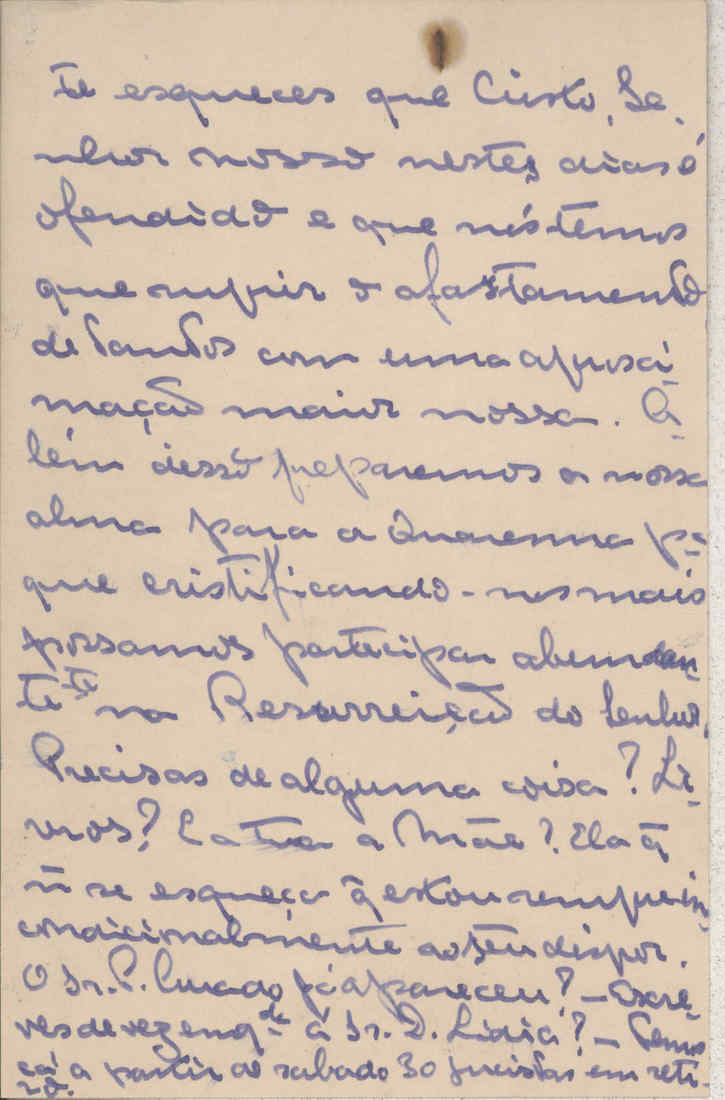 te esqueces que Cristo, Se-
nhor nosso nestes dias é
ofendido e que nós temos
que suprir o afastamento
de tantos com uma aproxi
mação maior nossa. A-
lém disso preparemos a nossa
alma para a Quaresma pª
que cristificando-nos mais
possamos participar abundan
te te na Resurreição do Senhor.
Precisas de alguma coisa? Li-
vros? E a tua Mãe? Ela q̃
ñ se esqueça q̃ estou sempre in-
condicionalmente ao seu dispor.
O Sr. P. Curado já apareceu? - Escre-
ves de vez enqdo à Sr. D. Lídia? - Temos
cá a partir de sabado 30 jucistas em reti-
ro.